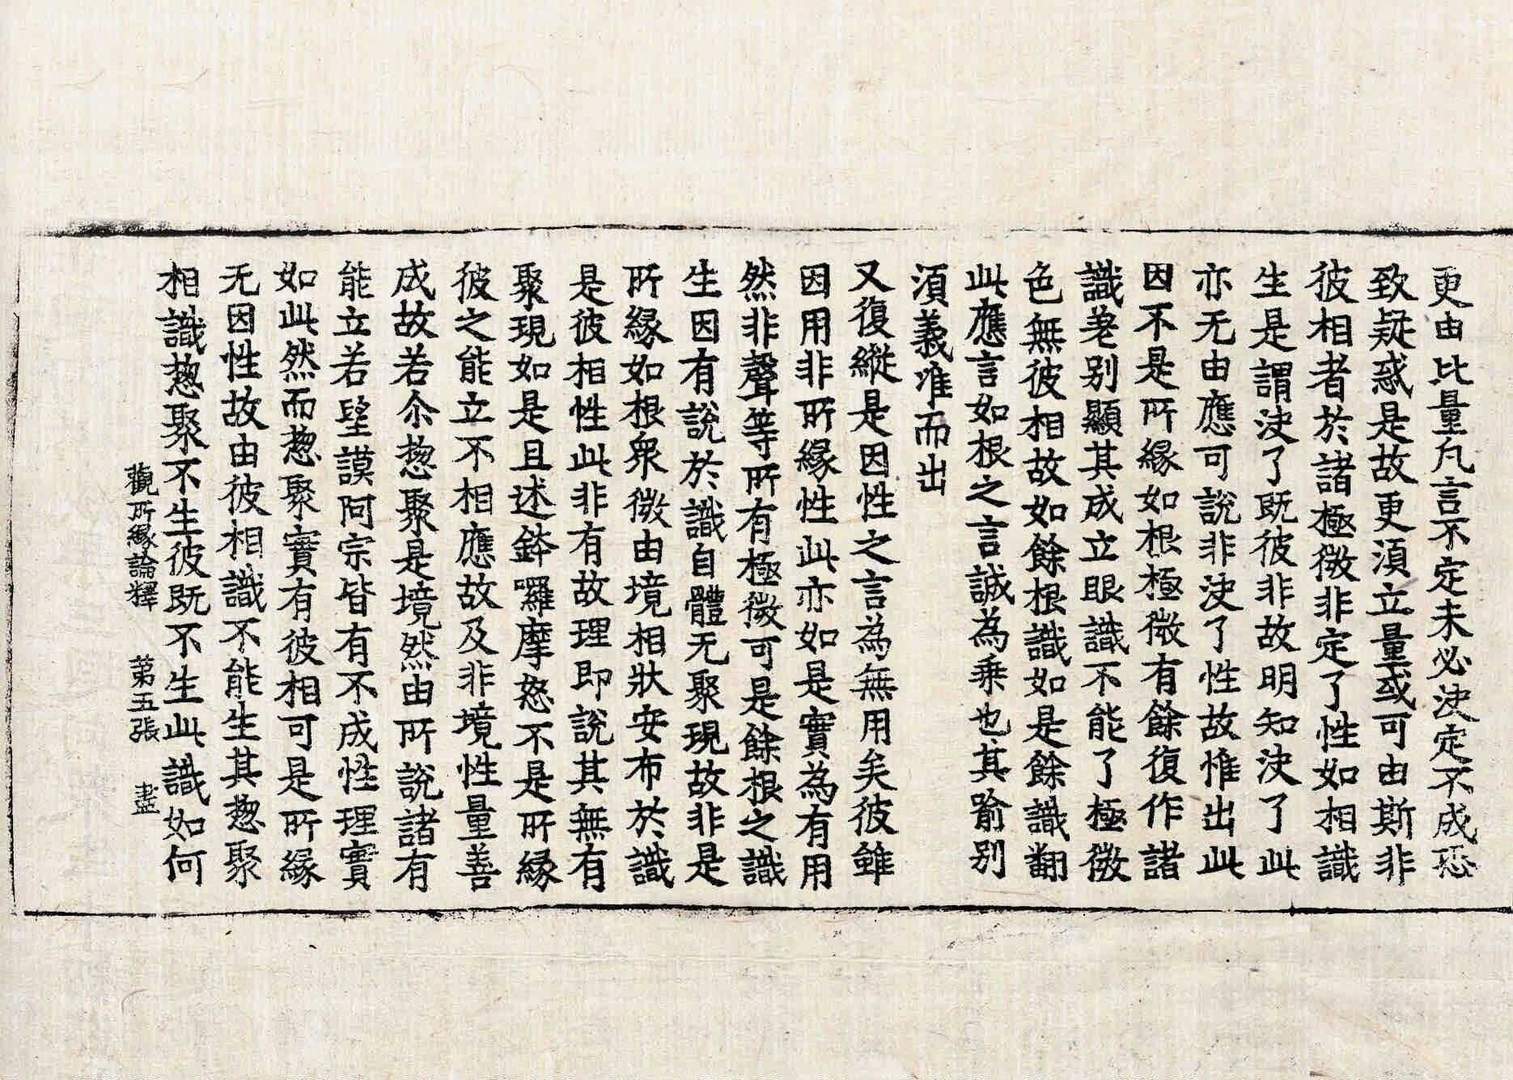 更由比量凡言不定未必決定不成恐
致疑惑是故更須立量或可由斯非
彼相者於諸極微非定了性如相識
生是謂決了既彼非故明知決了此
亦无由應可說非決了性故惟出此
因不是所緣如根極微有餘復作諸
識差別顯其成立眼識不能了極微
色無彼相故如餘根識如是餘識翻
此應言如根之言誠為乗也其喻別
須義准而出
又復縱是因性之言為無用矣彼雖
因用非所緣性此亦如是實為有用
然非聲等所有極微可是餘根之識
生因有說於識自體无聚現故非是
所緣如根衆微由境相狀安布於識
是彼相性此非有故理即說其無有
聚現如是且述鉢囉摩怒不是所緣
彼之能立不相應故及非境性量善
成故若尒惣聚是境然由所說諸有
能立若望謨阿宗皆有不成性理實
如此然而惣聚實有彼相可是所緣
无因性故由彼相識不能生其惣聚
相識惣聚不生彼既不生此識如何
觀所緣論釋 第五張 盡